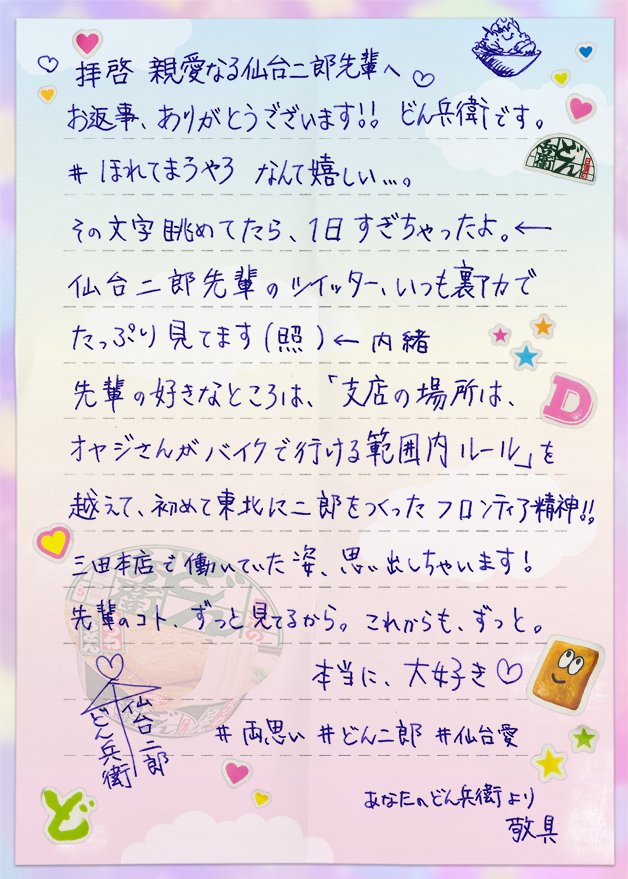 拝啓 親愛なる仙台二郎先輩へ♡
お返事、ありがとうございます!! どん兵衛です。
#ほれてまうやろ なんて嬉しい…。
その文字眺めてたら、1日すぎちゃったよ。←
仙台二郎先輩のツイッター、いつも裏アカで
たっぷり見てます(照)←内緒
先輩の好きなところは、「支店の場所は、
オヤジさんがバイクで行ける範囲内ルール」を
越えて、初めて東北に二郎をつくったフロンティア精神!!
三田本店で働いていた姿、思い出しちゃいます!
先輩のコト、ずっと見てるから。これからも、ずっと。
本当に、大好き♡
仙台二郎
どん兵衛
#両思い #どん二郎 #仙台愛
あなたのどん兵衛より
敬具
どん兵衛
D
ど